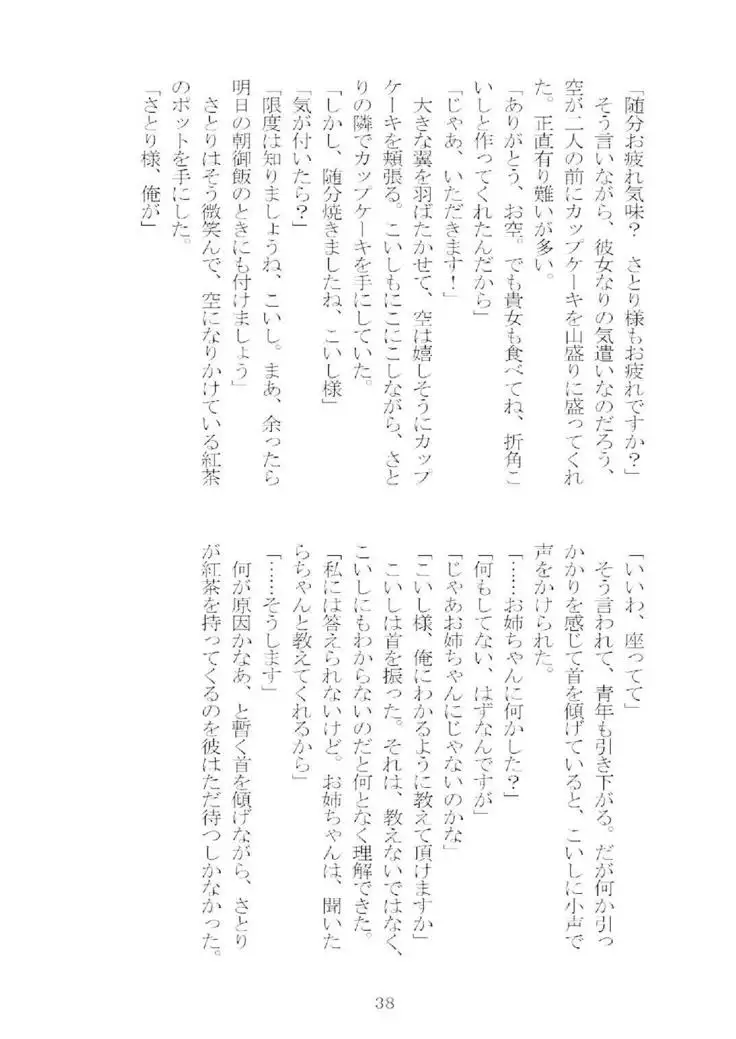 「随分お疲れ気味？　さとり様もお疲れですか？」
　そう言いながら、彼女なりの気遣いなのだろう、
空が二人の前にカップケーキを山盛りに盛ってくれ
た。正直有り難いが多い。
「ありがとう、お空。でも貴女も食べてね、折角こ
いしと作ってくれたんだから」
「じゃあ、いただきます！」
　大きな翼を羽ばたかせて、空は嬉しそうにカップ
ケーキを頬張る。こいしもにこにこしながら、さと
りの隣でカップケーキを手にしていた。
「しかし、随分焼きましたね、こいし様」
「気が付いたら？」
「限度は知りましょうね、こいし。まあ、余ったら
明日の朝御飯のときにも付けましょう」
　さとりはそう微笑んで、空になりかけている紅茶
のポットを手にした。
「さとり様、俺が」
「いいわ、座ってて」
　そう言われて、青年も引き下がる。だが何か引っ
かかりを感じて首を傾げていると、こいしに小声で
声をかけられた。
「……お姉ちゃんに何かした？」
「何もしてない、はずなんですが」
「じゃあお姉ちゃんにじゃないのかな」
「こいし様、俺にわかるように教えて頂けますか」
　こいしは首を振った。それは、教えないではなく、
こいしにもわからないのだと何となく理解できた。
「私には答えられないけど。お姉ちゃんは、聞いた
らちゃんと教えてくれるから」
「……そうします」
　何が原因かなあ、と暫く首を傾げながら、さとり
が紅茶を持ってくるのを彼はただ待つしかなかった。
38